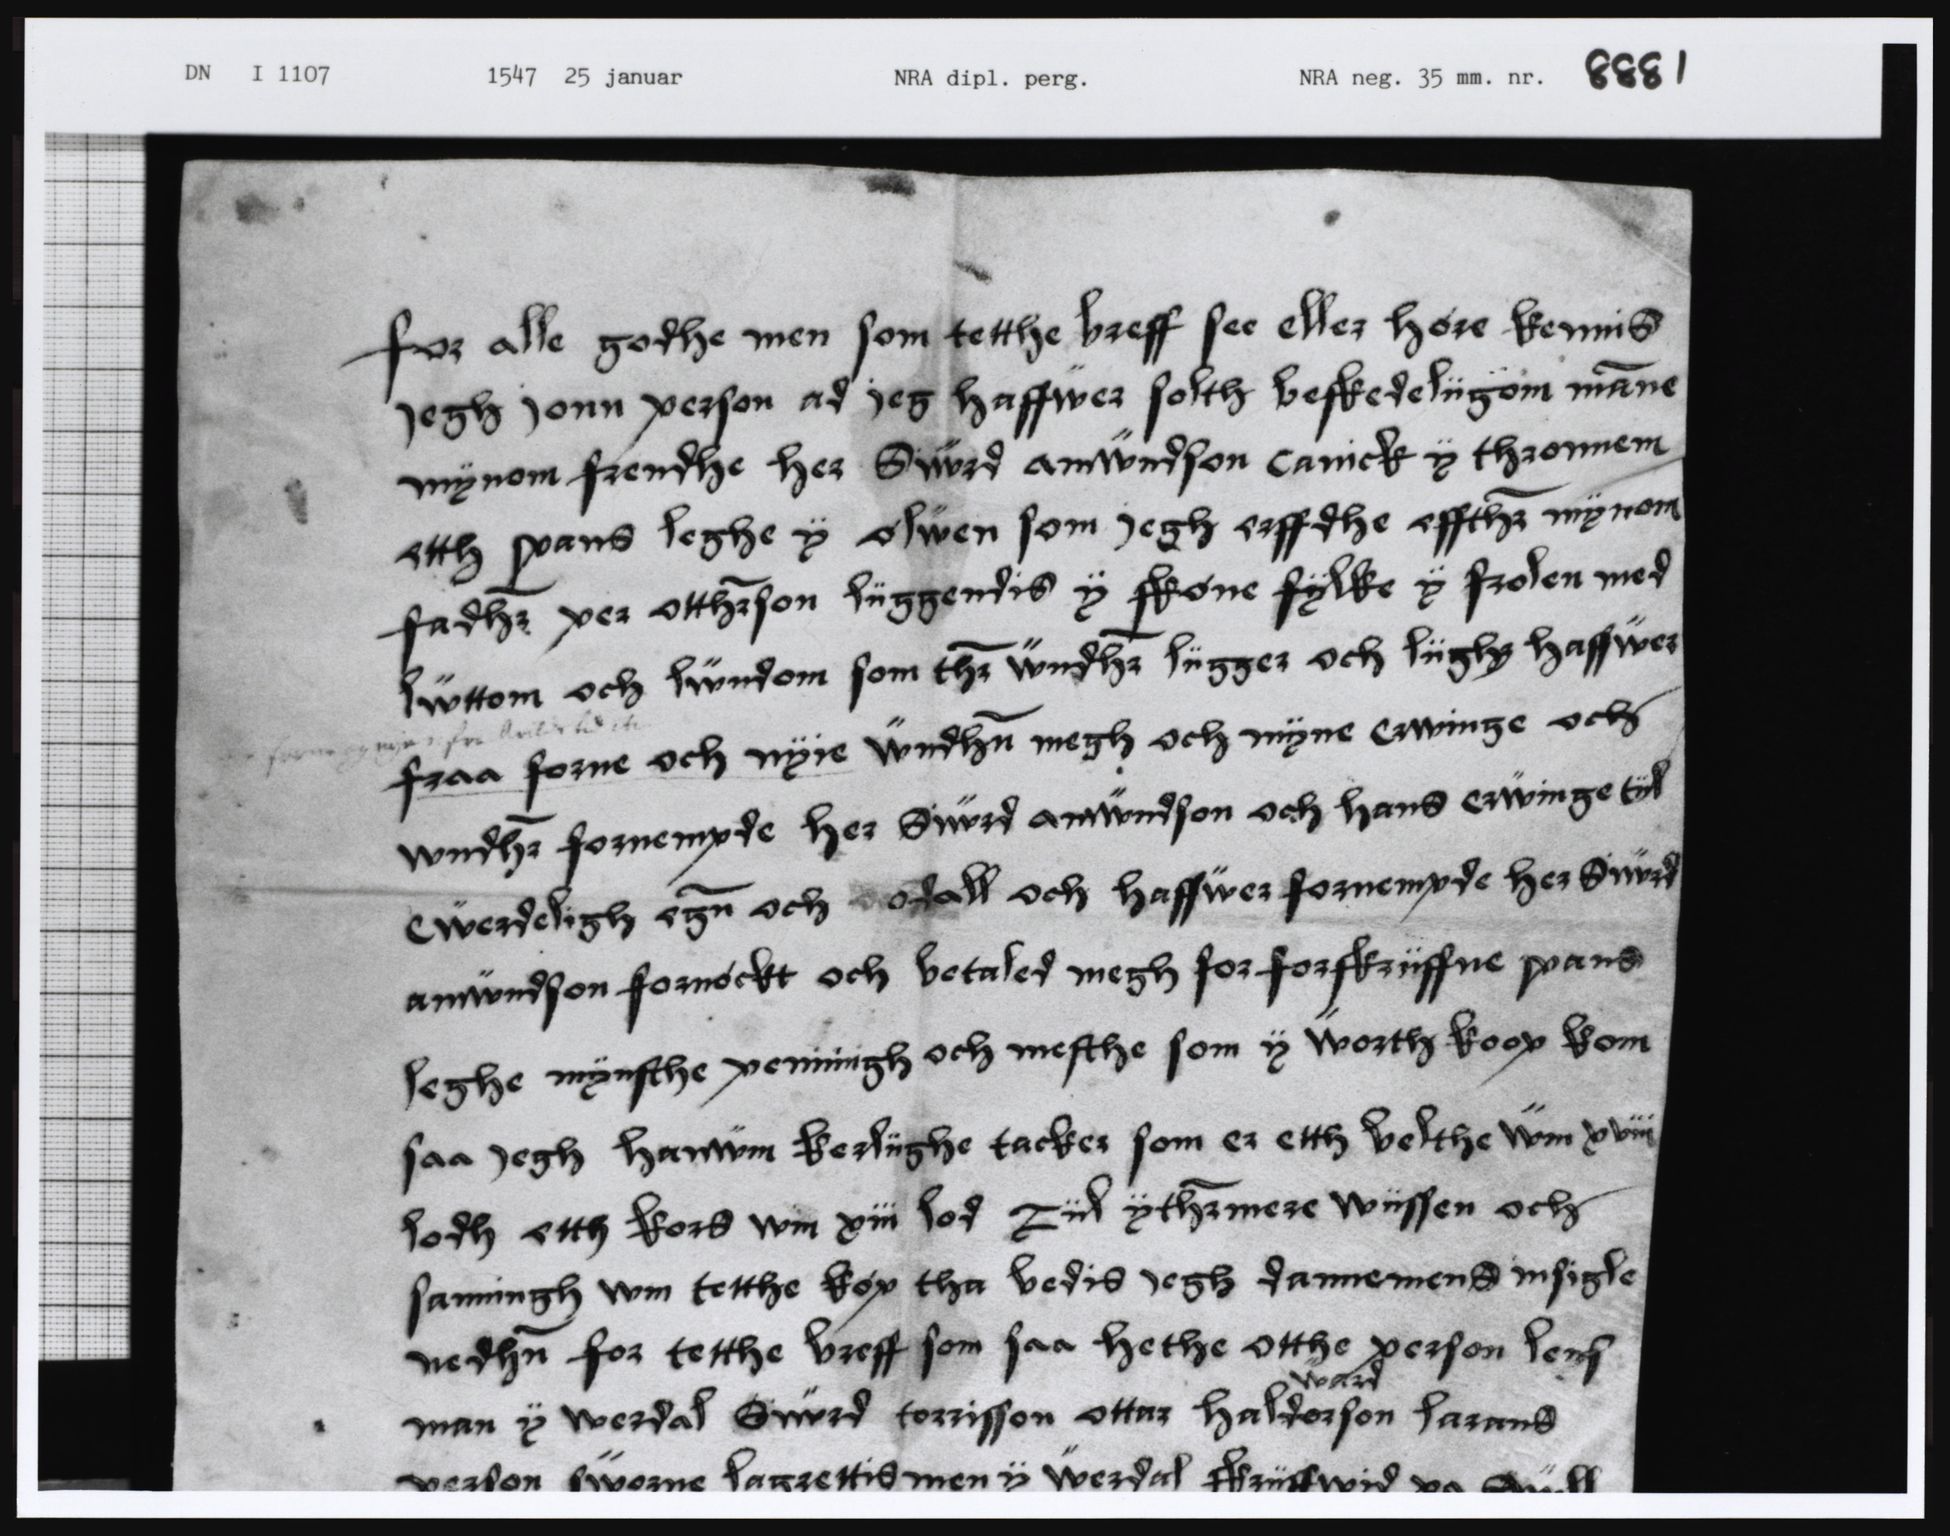 DN I 1107 1547 25 januar NRA dipl. perg. NRA neg. 35 mm. nr. 8881
for alle godhe men som tetthe breff see eller høre kennis
jegh jonn person ad jeg haffẅer solth beskedelügöm māne
mÿnom frendhe her Siẅrd amẅndson canick ÿ thronnem
etth spans leghe ÿ ølẅen som jegh erffdhe effthr̄ mÿnom
fadhr̄ per otthr̄son lüggendis ÿ skøne fÿlke ÿ frolen med
lẅttom och lẅndom som thr̄ ẅndhr̄ lügger och lüghӡ haffẅer
fraa forne och nÿie ẅndhn̄ megh och mÿne erwinge och
wndhr̄ fornempde her Siẅrd amẅndson och hans erẅinge tÿl
eẅerdeligh egn̄ och odall och haffẅer fornempde her Siẅrd
amẅndson fornøckt och betaled megh for forskrüffne spans
leghe mÿnsthe penningh och mesthe som ÿ ẅorth koop kom
saa jegh hanẅm kerlüghe tacker som er etth belthe ẅm xviii
lodh etth kors wm xiii lod Tül ÿthr̄mere wüssen och
sanningh wm tetthe køp tha bedis jegh dannemens insigle
nedhn̄ for tetthe breff som saa hethe otthe person lens
ẅard
man ÿ werdal Siẅrd torrisson ottar haldorson larans
person sẅorne lagrettis men ÿ ẅerdal